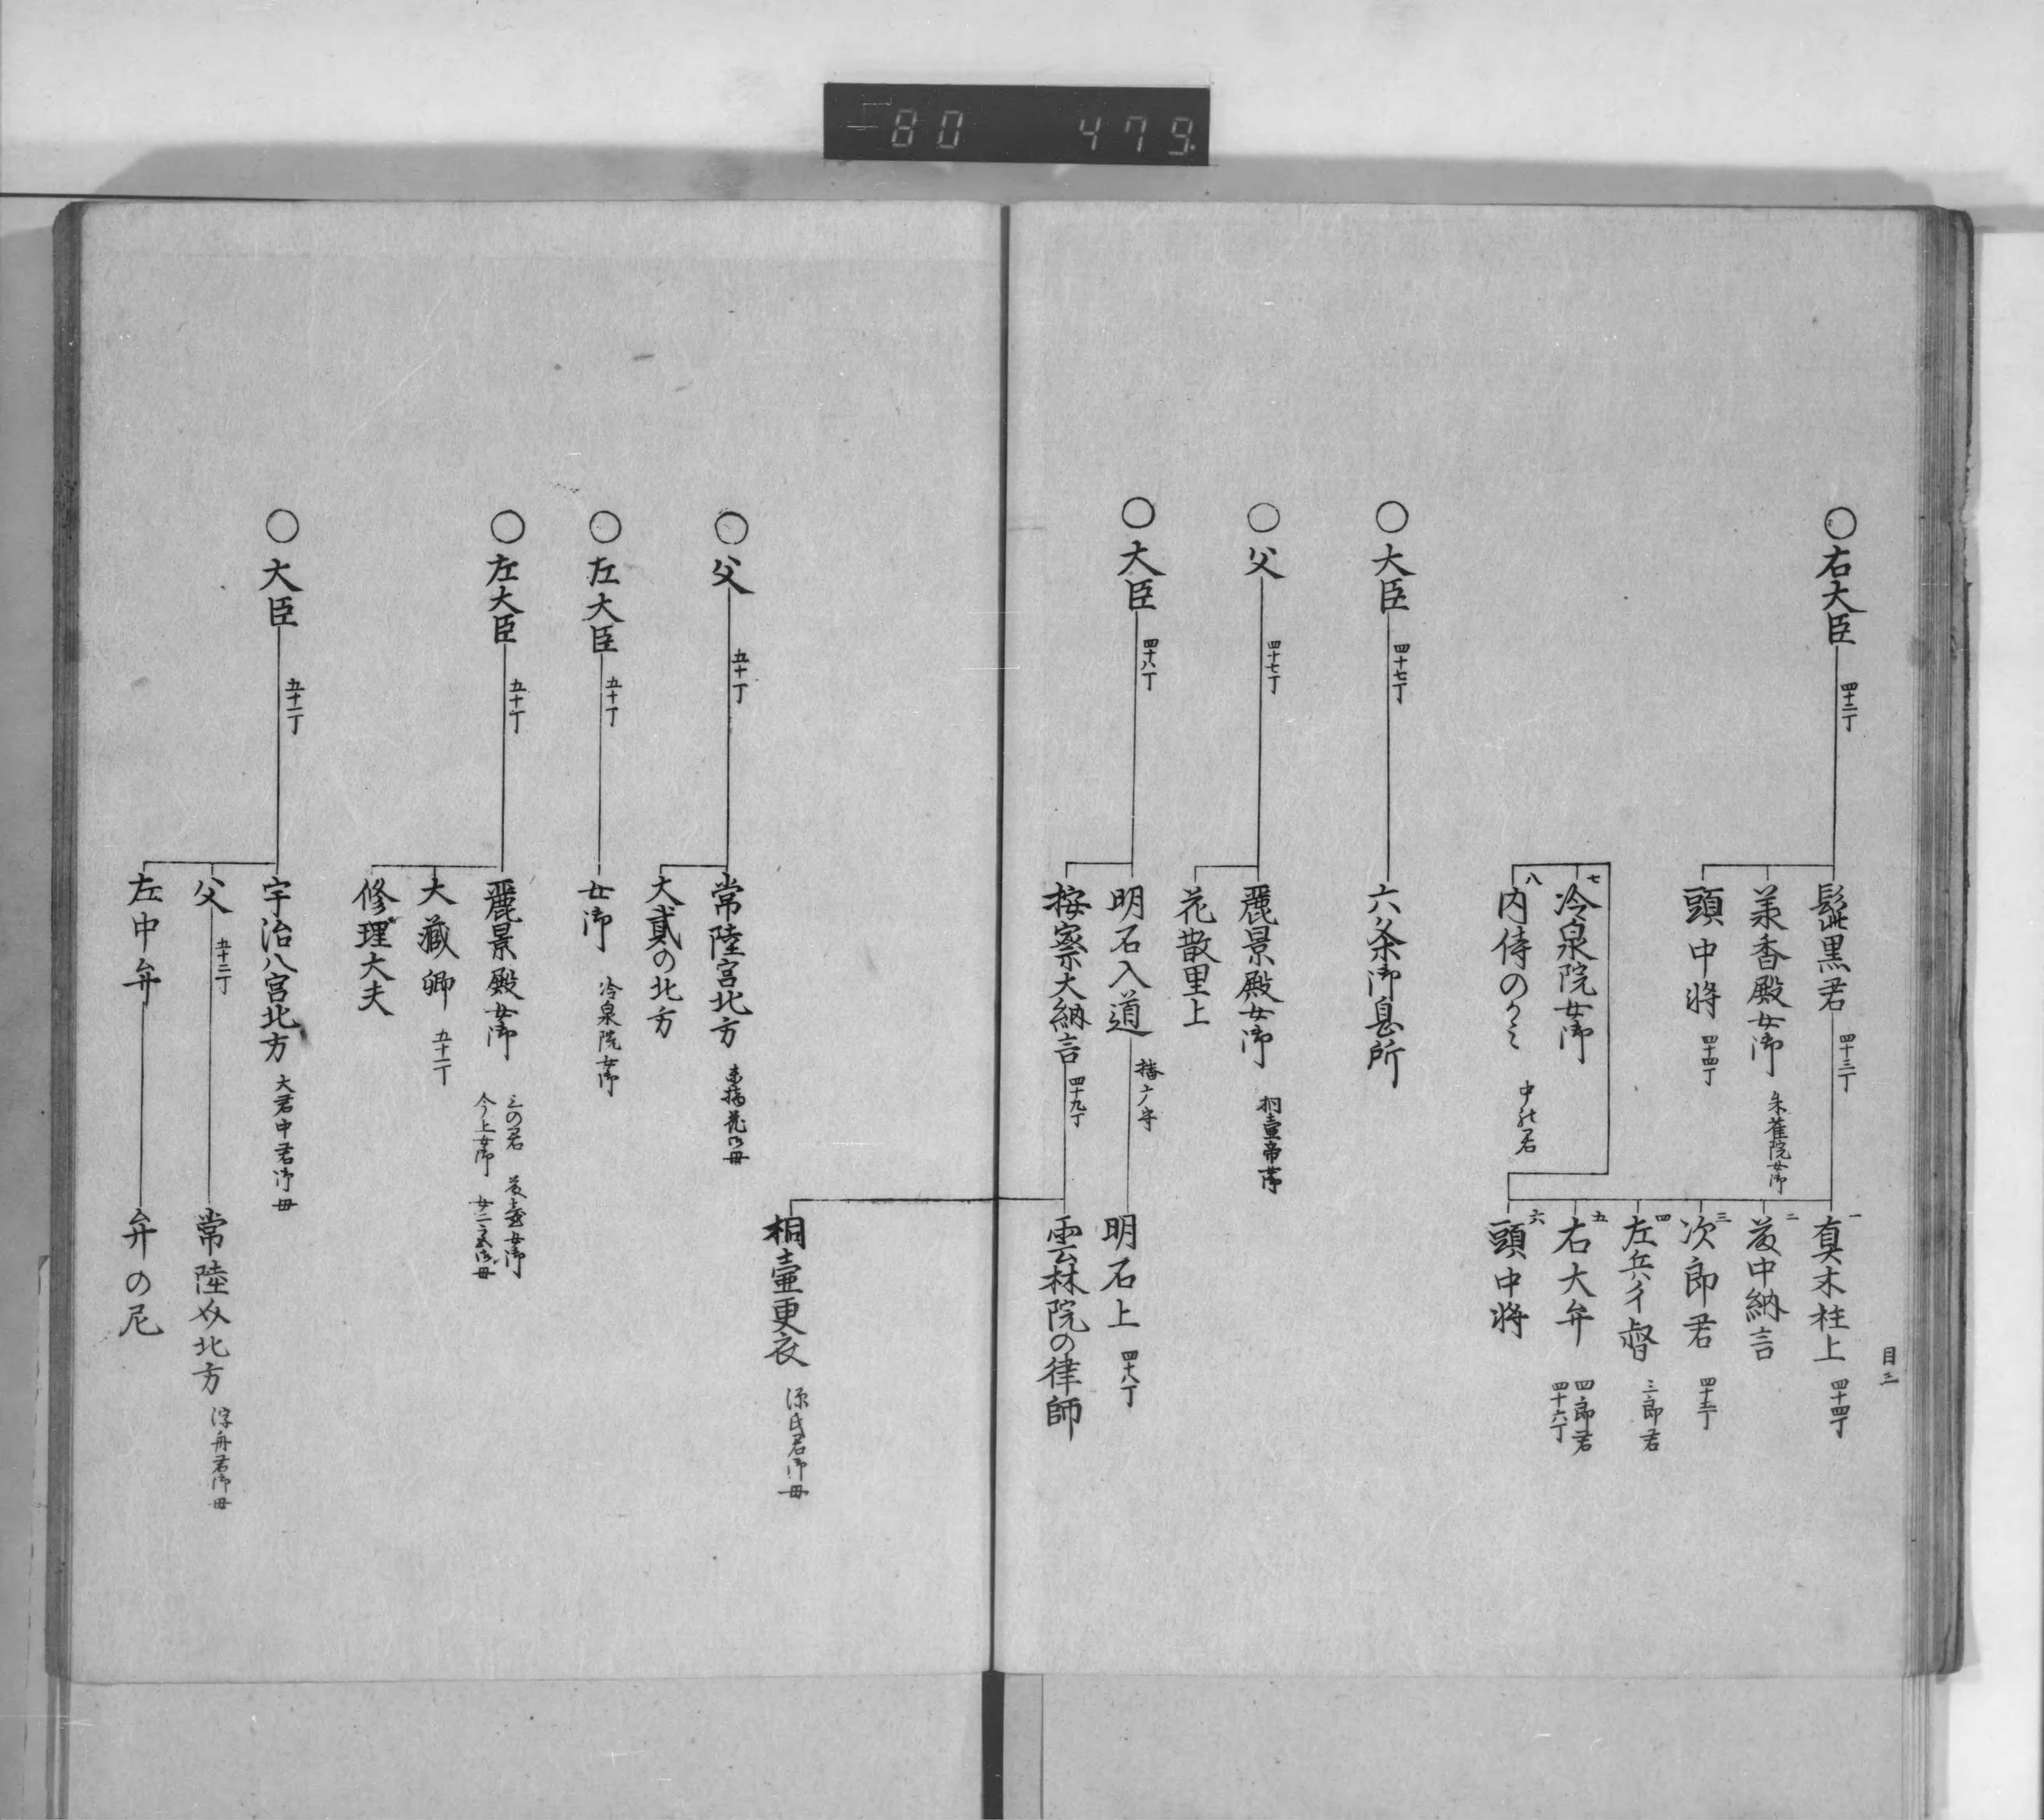 80 479
目三
〇右大臣 四十二丁
髭黒君 四十三丁
承香殿女御 朱雀院女御
頭中将 四十四丁
一 真木柱上 四十四丁
二 藤中納言
三 次郎君 四十五丁
四 左兵衛督 三郎君
五 右大弁 四郎君 四十六丁
六 頭中将
七 冷泉院女御
八 内侍のかミ 中の君
〇大臣 四十七丁
六条御息所
〇父 四十七丁
麗景殿女御 桐壷帝女御
花散里上
〇大臣 四十八丁
明石入道 播ノ守
明石上 四十八丁
按察大納言 四十九丁
雲林院の律師
桐壷更衣 源氏君御母
〇父 五十丁
常陸宮北方 末摘花御母
大貳の北方
〇左大臣 五十丁
女御 冷泉院女御
〇左大臣 五十丁
麗景殿女御 三の君 藤壷女御
今上女御 女二宮御母
大蔵卿 五十一丁
修理大夫
〇大臣 五十一丁
宇治八宮北方 大君中君御母
父 五十二丁
常陸介北方 浮舟君御母
左中弁
弁の尼